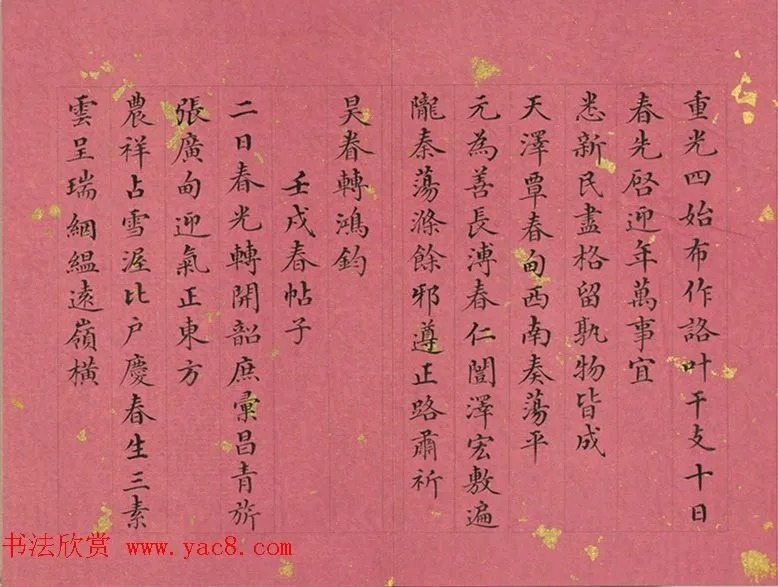 重光四始布作詻叶干支十日
春先啓迎年萬事宜
悉新民盡格留孰物皆成
天澤覃春甸西南奏蕩平
元為善長溥春仁闓澤宏敷遍
隴秦蕩滌餘邪遵正路肅祈
昊眷轉鴻鈞
壬戌春帖子
二日春光轉開韶庶彚昌青旂
張廣甸迎氣正東方
農祥占雪渥比户慶春生三素
雲呈瑞絪緼遠嶺橫
书法欣赏 www.yac8.com